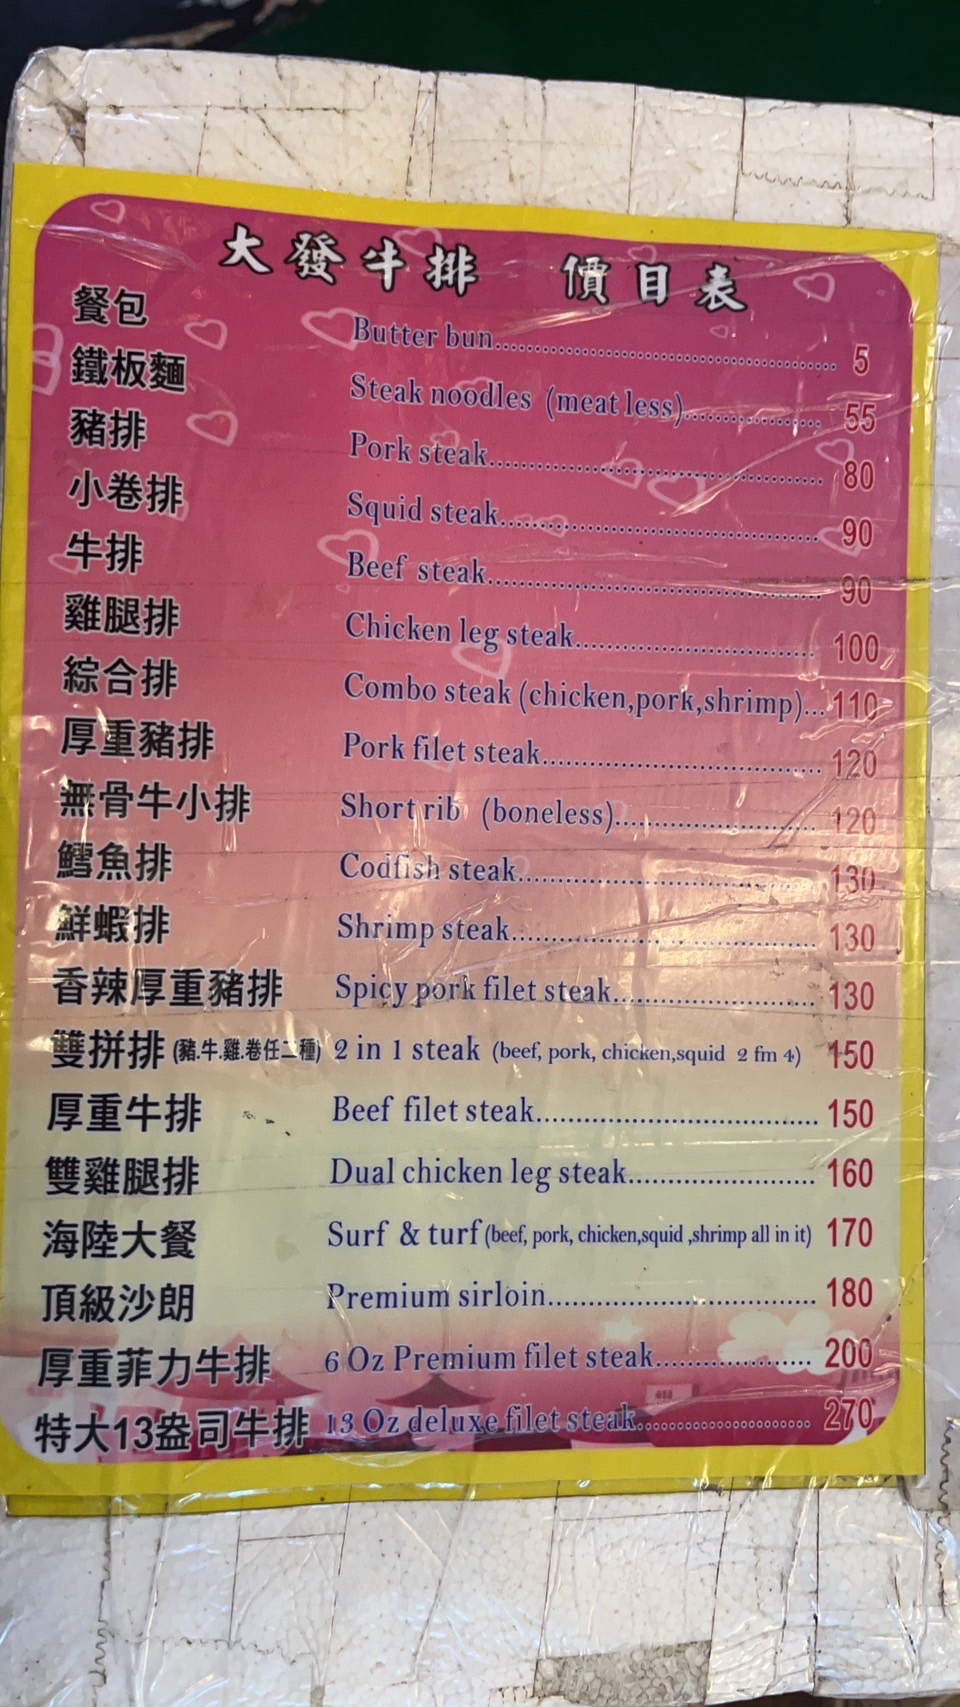 大發牛排 價目表
餐包 Butter bun 5
鐵板麵 Steak noodles (meat less) 55
豬排 Pork steak 80
小卷排 Squid steak 90
牛排 Beef steak 90
雞腿排 Chicken leg steak 100
綜合排 Combo steak (chicken,pork,shrimp)... 110
厚重豬排 Pork filet steak 120
無骨牛小排 Short rib (boneless) 120
鱈魚排 Codfish steak 130
鮮蝦排 Shrimp steak 130
香辣厚重豬排 Spicy pork filet steak 130
雙拼排 (豬.牛.雞.卷任二種) 2 in 1 steak (beef, pork, chicken,squid 2 fm 4) 150
厚重牛排 Beef filet steak 150
雙雞腿排 Dual chicken leg steak 160
海陸大餐 Surf & turf (beef, pork, chicken,squid ,shrimp all in it) 170
頂級沙朗 Premium sirloin 180
厚重菲力牛排 6 Oz Premium filet steak 200
特大13盎司牛排 13 Oz deluxe filet steak 270